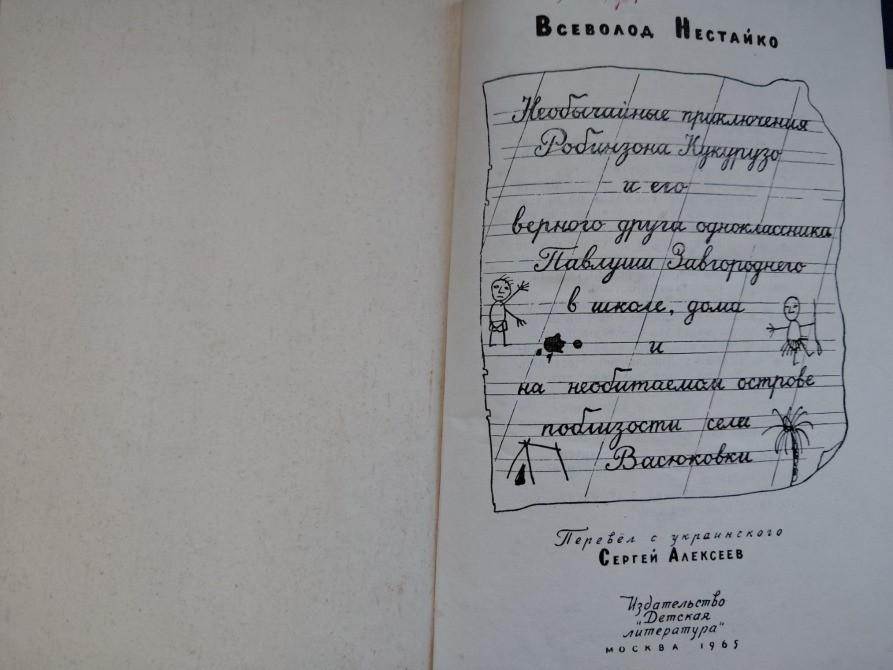 Всеволод Нестайко
Необычайные приключения
Робинзона Кукурузо
и его
верного друга одноклассника
Павлуши Завгороднего
в школе, дома
и
на необитаемом острове
поблизости села
Васюковки
Перевёл с украинского
Сергей Алексеев
Издательство
"Детская
литература"
Москва 1965